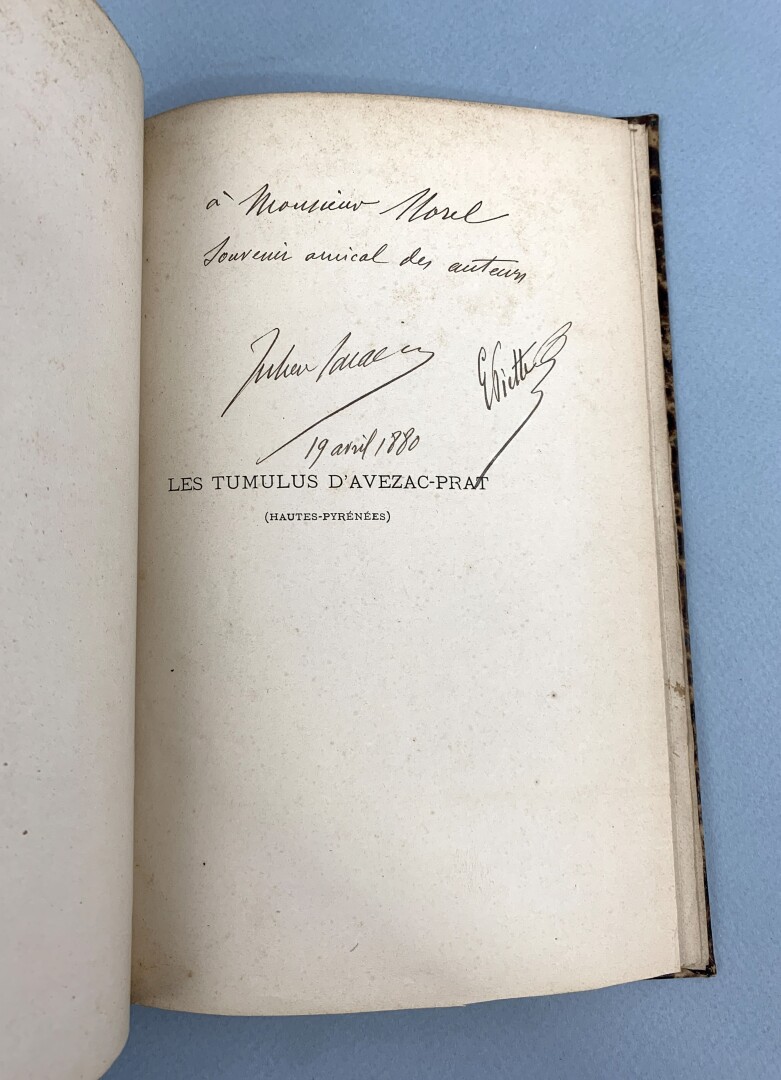 à Monsieur Morel
Souvenir amical des auteurs
Julien Sacaze
E Piette
19 avril 1880
LES TUMULUS D'AVEZAC-PRAT
(HAUTES-PYRÉNÉES)